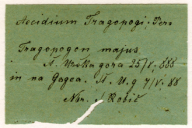 Aecidium Tragopogi: Pers
Tragopogon majus
A. Urška gora 25/V. 888
in na Gogca. A. U. g 7/V. 88
Nm. S. Robič